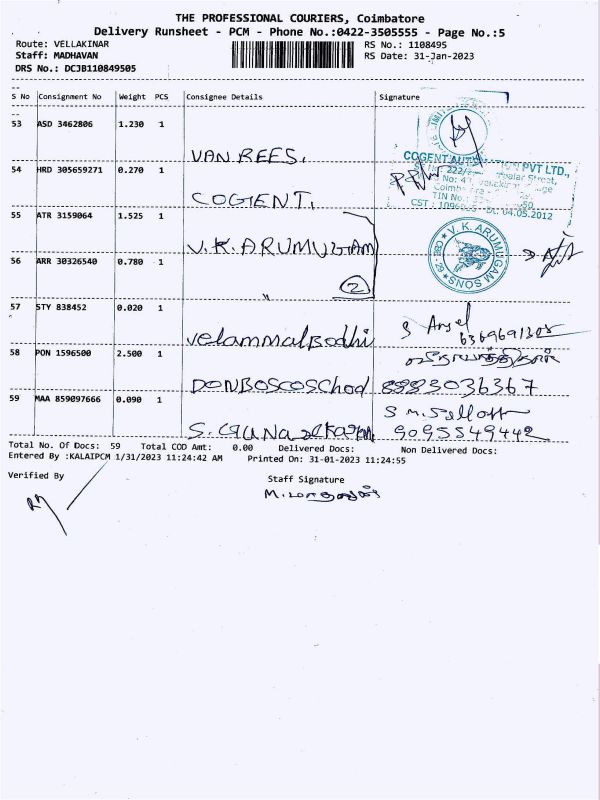 THE PROFESSIONAL COURIERS, Coimbatore
Delivery Runsheet - PCM - Phone No.:0422-3505555 - Page No.:5
Route: VELLAKINAR RS No.: 1108495
Staff: MADHAVAN RS Date: 31-Jan-2023
DRS No.: DCJB110849505
S No Consignment No Weight PCS Consignee Details Signature
53 ASD 3462806 1.230 1
VAN REES.
54 HRD 305659271 0.270 1
COGENT.
COGENT PVT LTD.,
Street,
TIN No
CST : Dt. 04.05.2012
55 ATR 3159064 1.525 1
V.K. ARUMUGAM
V.K. ARUMUGAM SONS
CBE - 29
56 ARR 30326540 0.780 1
" 2
57 STY 838452 0.020 1
Velammal Bodhi
6369691308
58 PON 1596500 2.500 1
DONBOSCO School 8883036367
59 MAA 859097666 0.090 1
S. 9095549442
Total No. Of Docs: 59 Total COD Amt: 0.00 Delivered Docs: Non Delivered Docs:
Entered By :KALAIPCM 1/31/2023 11:24:42 AM Printed On: 31-01-2023 11:24:55
Verified By Staff Signature